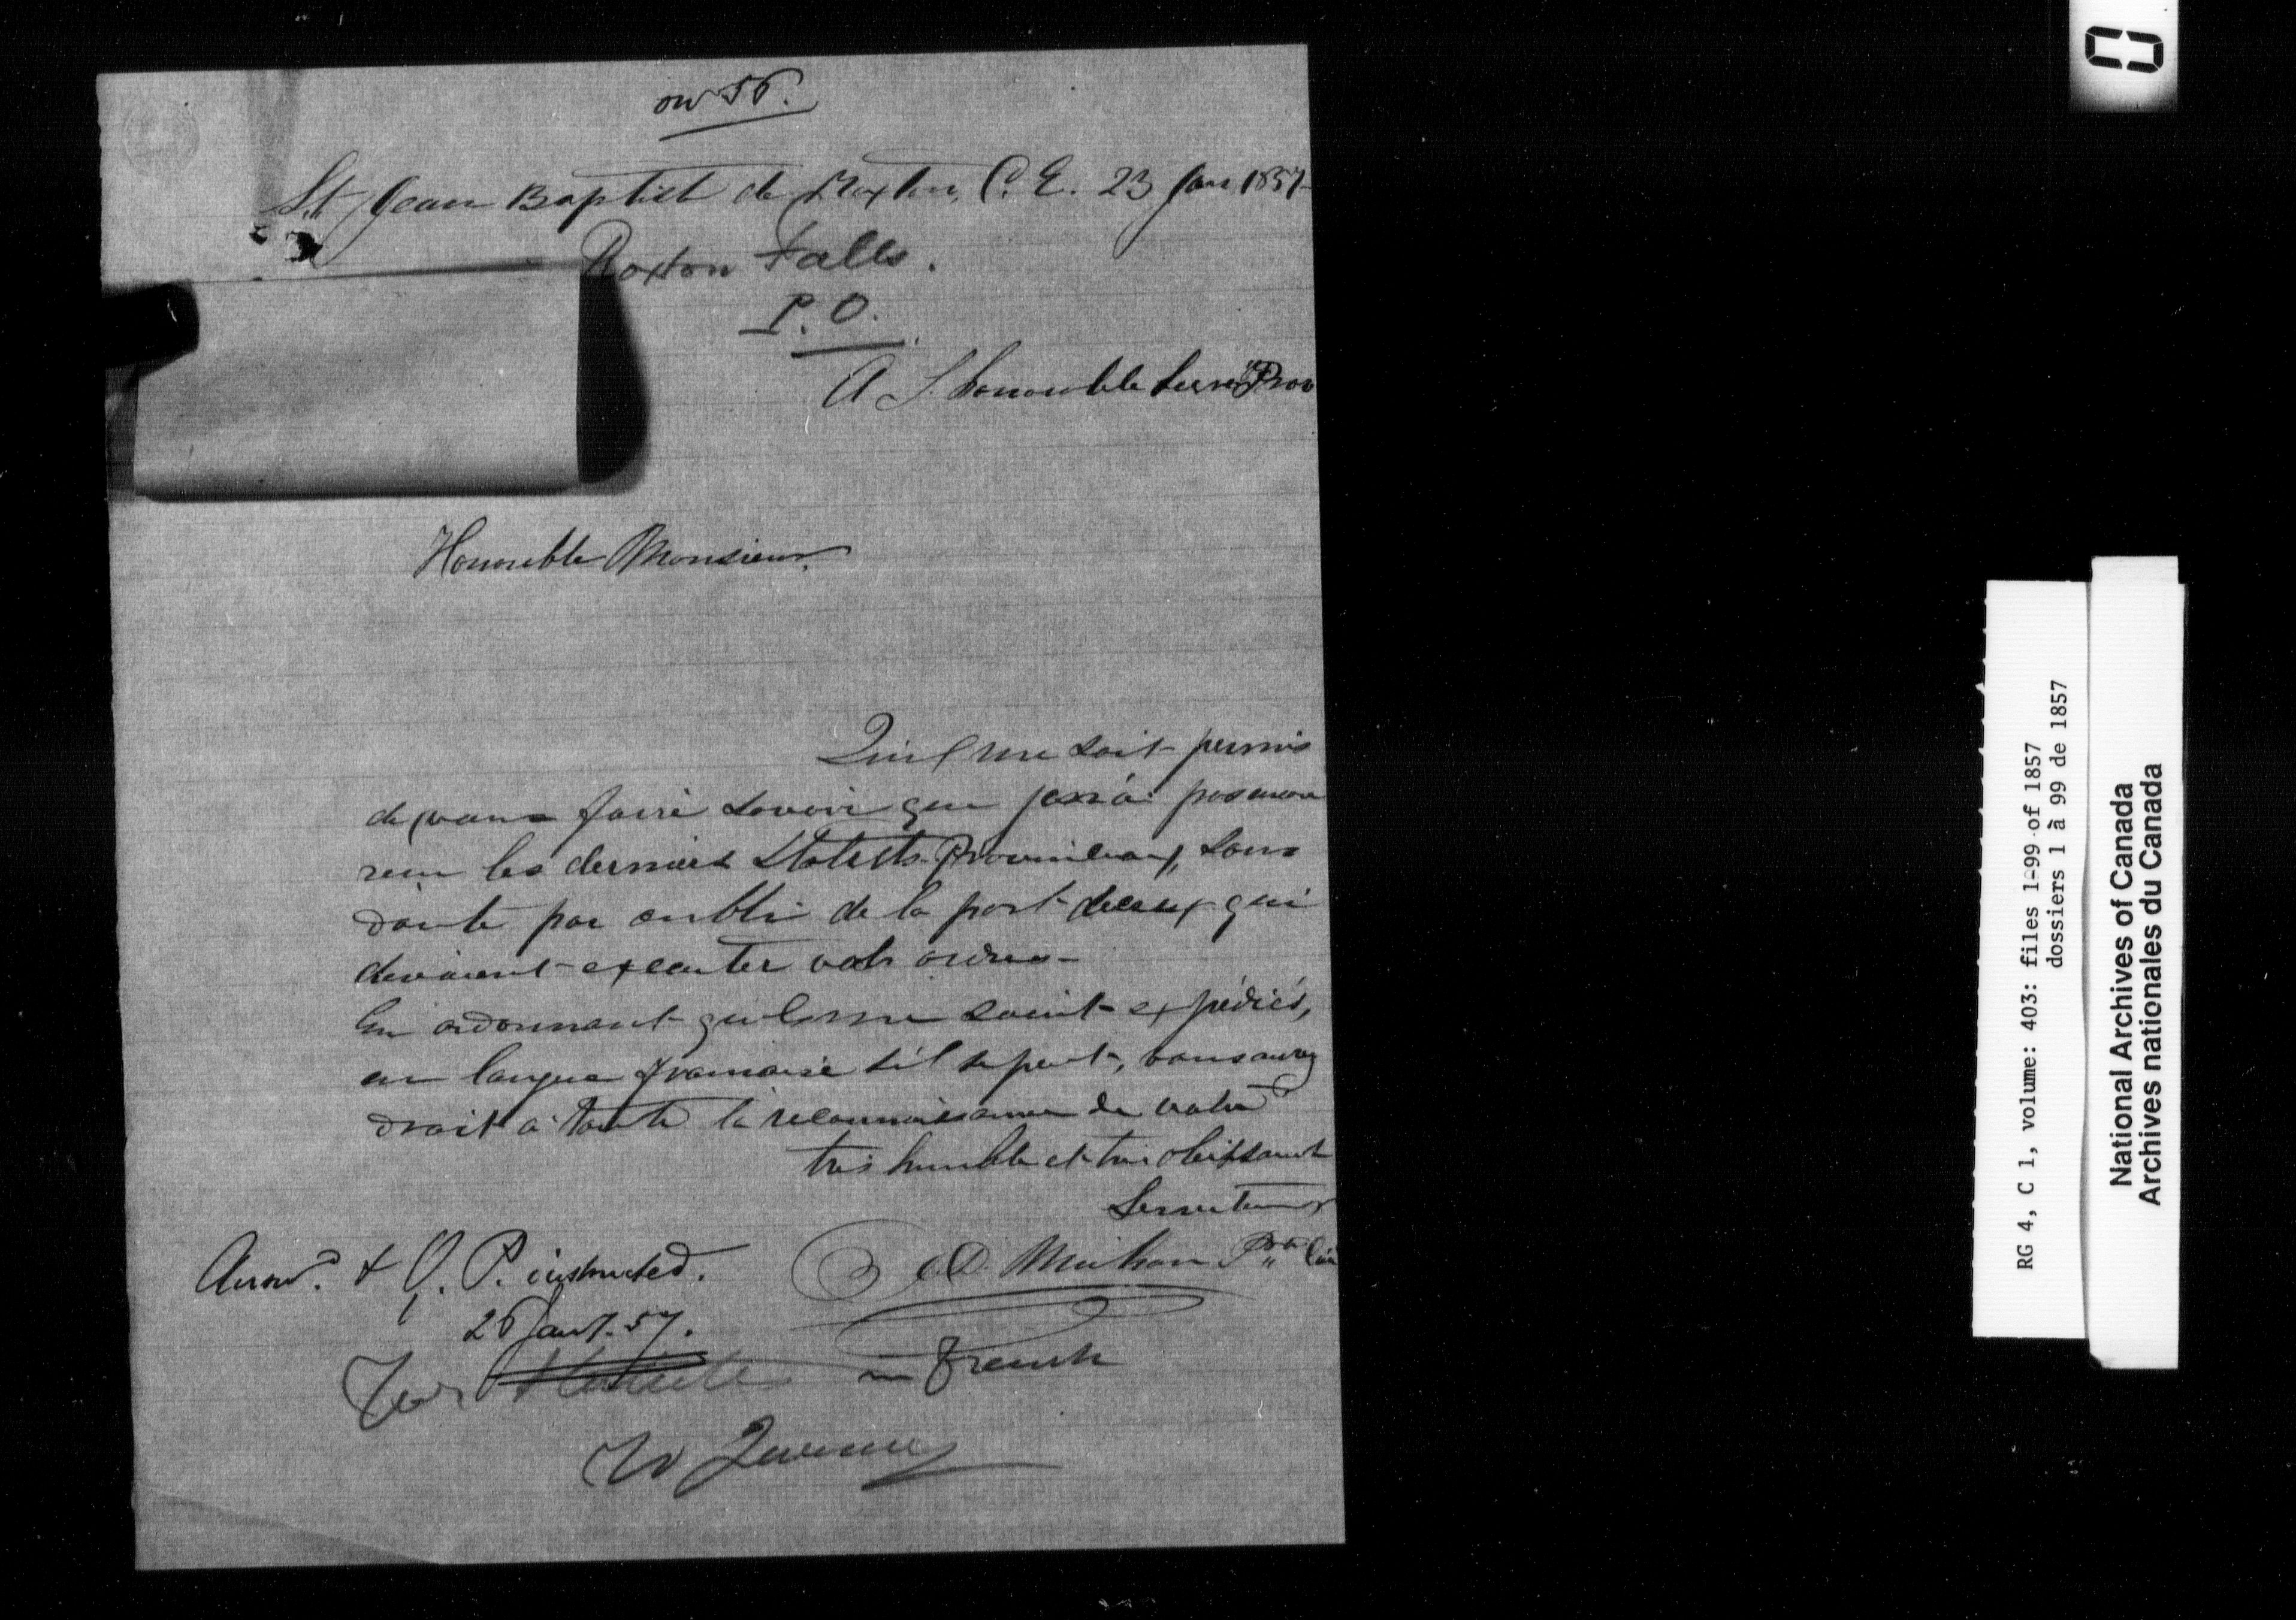 on 56.
St Jean Baptist de Roxton, C. E. 23 Jan 1857
Roxton Falls.
P. O.
A L'honorable Secre Prov
Honorable Monsieur,
Qu'il me soit permis
de vous faire savoir que je n'ai pas encore
recu les derniers Statuts Provinciaux, sans
doute par oubli de la part de ceux qui
devaient executer vos ordres
En ordonnant qu'ils me soient expédiés,
en langue francaise s'il se peut, vous aurez
droit à toute la reconnaissance de votre
très humble et très obeissant
Serviteur
Answd. & Q. P. instructed.
26 Jany. 57.
in French
RG 4, C 1, volume: 403: files 1-99 of 1857
dossiers 1 à 99 de 1857
National Archives of Canada
Archives nationales du Canada